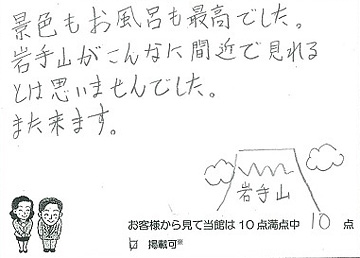 景色もお風呂も最高でした。
岩手山がこんなに間近で見れる
とは思いませんでした。
また来ます。
岩手山
お客様から見て当館は10点満点中 10 点
☑ 掲載可※